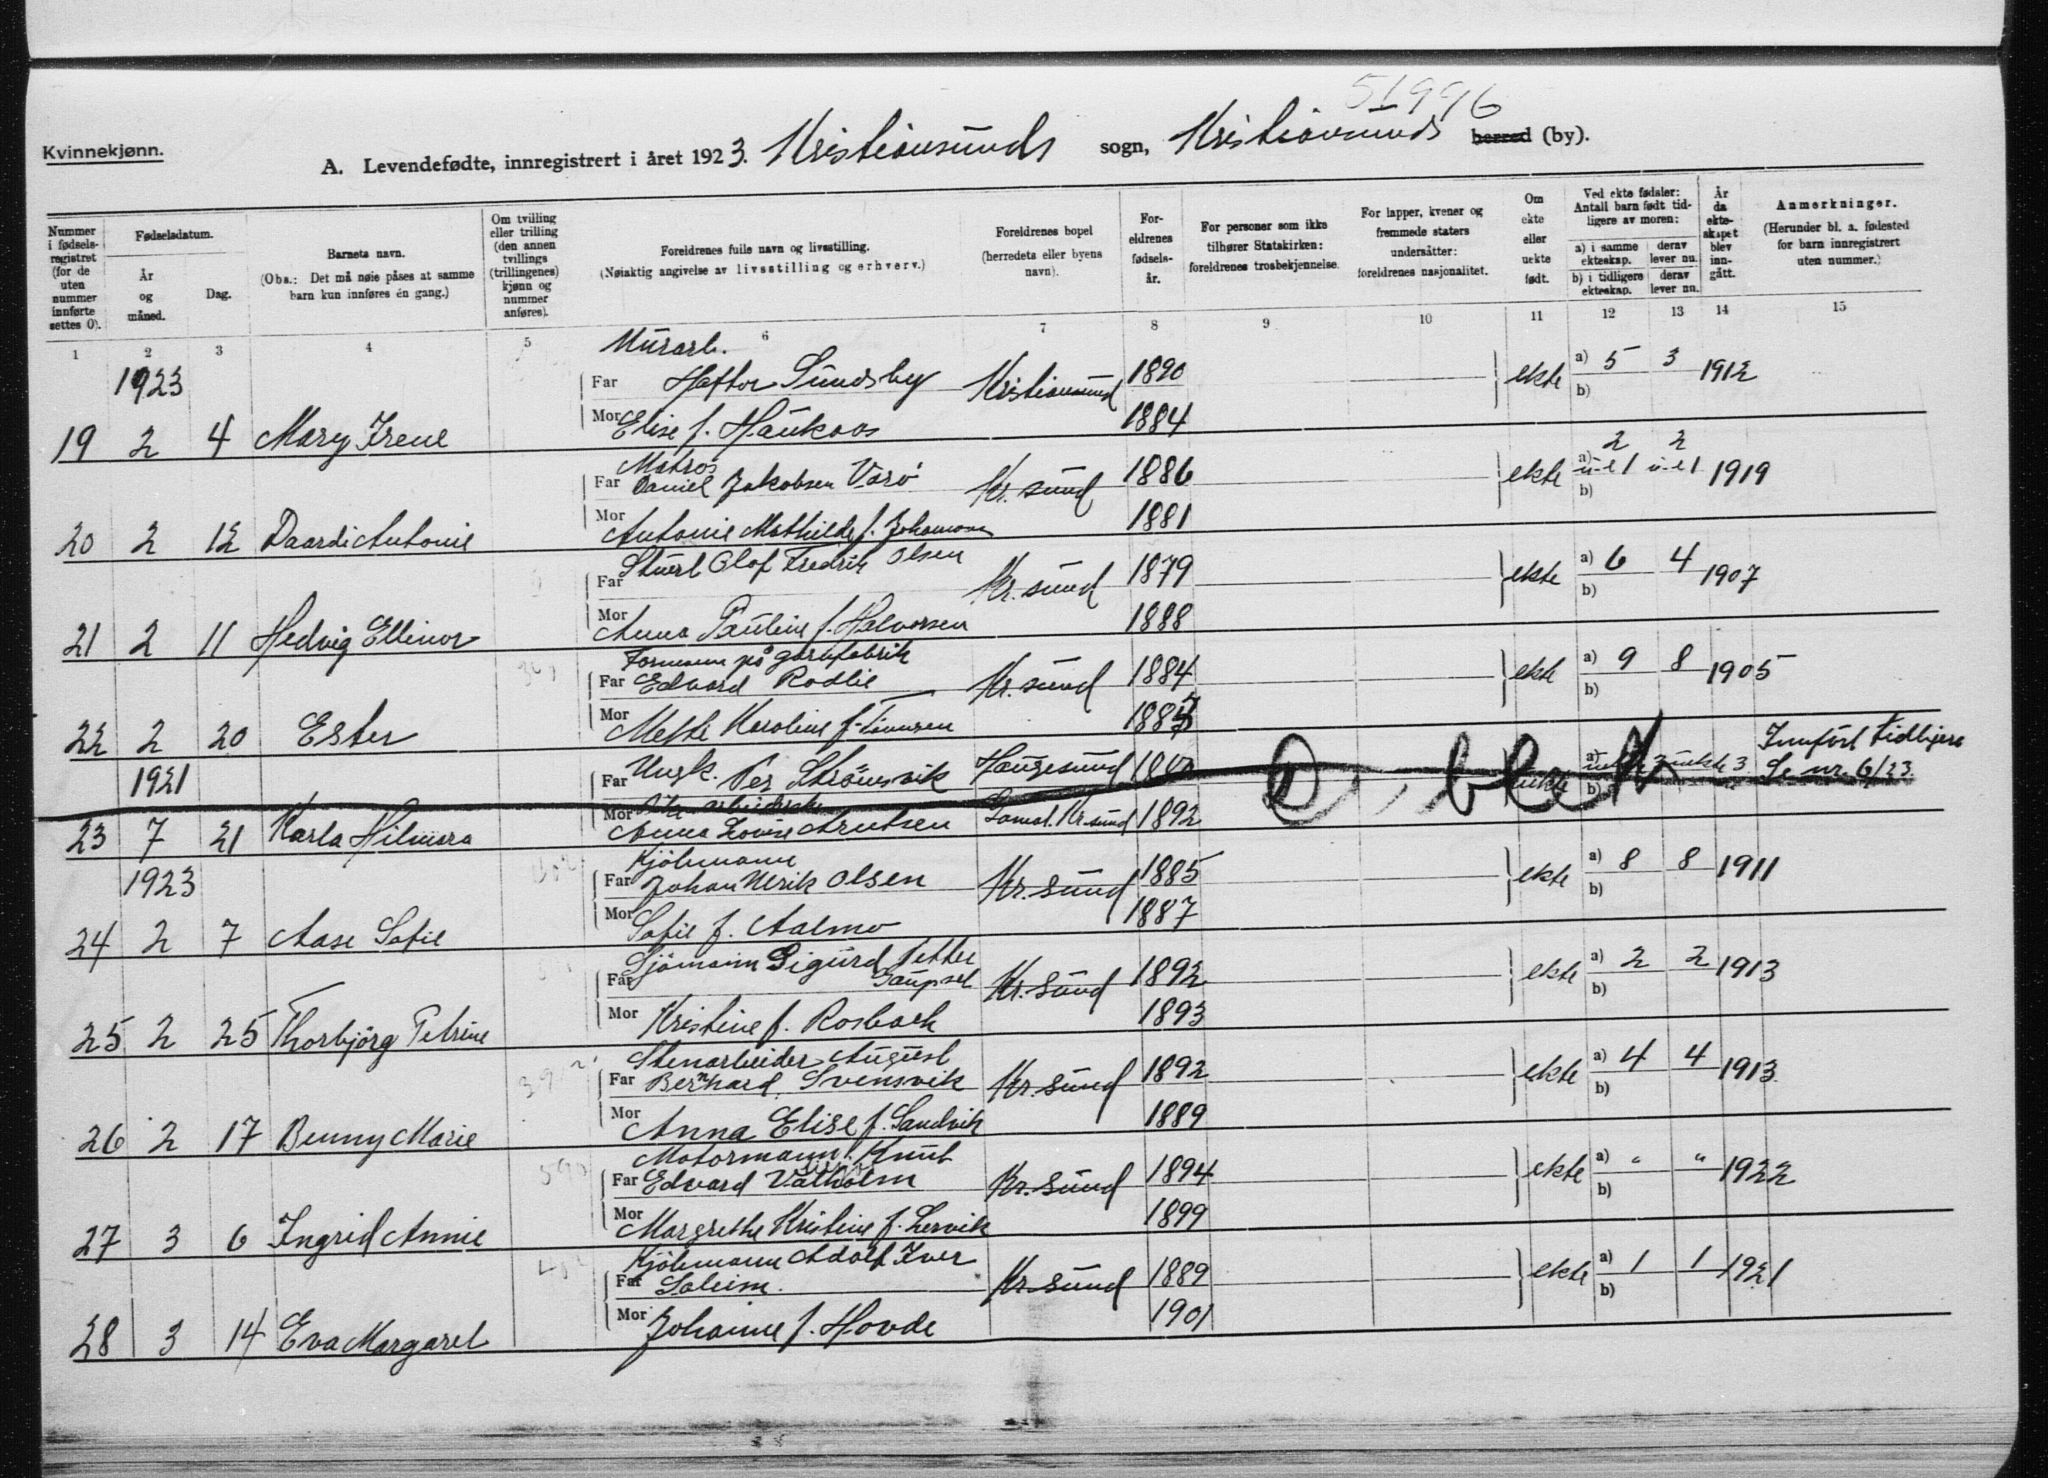 51996
Kvinnekjønn.
A. Levendefødte, innregistrert i året 1923. Kristiansunds sogn, Kristiansunds herred (by).
Nummer i fødselsregistret (for de uten nummer innførte settes 0).
Fødselsdatum.
År og måned.
Dag.
Barnets navn.
(Obs.: Det må nøie påses at samme barn kun innføres én gang.)
Om tvilling eller trilling (den annen tvillings (trillingenes) kjønn og nummer anføres).
Foreldrenes fulle navn og livsstilling.
(Nøiaktig angivelse av livsstilling og erhverv.)
Foreldrenes bopel (herredets eller byens navn).
Foreldrenes fødselsår.
For personer som ikke tilhører Statskirken: foreldrenes trosbekjennelse.
For lapper, kvener og fremmede staters undersåtter: foreldrenes nasjonalitet.
Om ekte eller uekte født.
Ved ekte fødsler: Antall barn født tidligere av moren:
a) i samme ekteskap. derav lever nu.
b) i tidligere ekteskap. derav lever nu.
År da ekteskapet blev inngått.
Anmerkninger.
(Herunder bl. a. fødested for barn innregistrert uten nummer.)
1 2 3 4 5 6 7 8 9 10 11 12 13 14 15
1923
Murarb.
Far Haftor Sundsby Kristiansund 1890 ekte a) 5 3 1912
b)
Mor Elise f. Haukaas 1884
19 2 4 Mary Irene
Matros
Far Daniel Jakobsen Varö Kr. sund 1886 ekte 2 2
a) u-e 1 u-e 1 1919
b)
Mor Antonie Mathilde f. Johansen 1881
20 2 12 Daardi Antonie
Far Stuert Olaf Fredrik Olsen Kr. sund 1879 ekte a) 6 4 1907
b)
Mor Anna Pauline f. Halvorsen 1888
21 2 11 Hedvig Ellinor
Formann på garnfabrik
Far Edvard Rodlie Kr. sund 1884 ekte a) 9 8 1905
b)
Mor Mette Karoline f. 1887
22 2 20 Ester
1921
Far Ungk. Per Strömsvik Haugesund Dublett uekte a) uekte 3 uekte 3 Innfört tidligere
b) Se nr. 6/23.
Mor Pike arbeiderske
Anna Lovise Arntsen Kr. sund 1892
23 7 21 Karla Hilmara
1923
Kjöbmann
Far Johan Ulrik Olsen Kr. sund 1885 ekte a) 8 8 1911
b)
Mor Sofie f. Aalmo 1887
24 2 7 Aase Sofie
Sjömann Sigurd Petter
Far Gaupset Kr. sund 1892 ekte a) 2 2 1913
b)
Mor Kristine f. Rosbach 1893
25 2 25 Thorbjörg Petrine
Stenarbeider August
Far Bernhard Svensvik Kr. sund 1892 ekte a) 4 4 1913
b)
Mor Anna Elise f. Sandvik 1889
26 2 17 Benny Marie
Motormann Knut
Far Edvard Valholm Kr. sund 1894 ekte a) " " 1922
b)
Mor Margrethe Kristine f. Lervik 1899
27 3 6 Ingrid Annie
Kjöbmann Adolf Iver
Far Soleim. Kr. sund 1889 ekte a) 1 1 1921
b)
Mor Johanne f. Hovde 1901
28 3 14 Eva Margaret